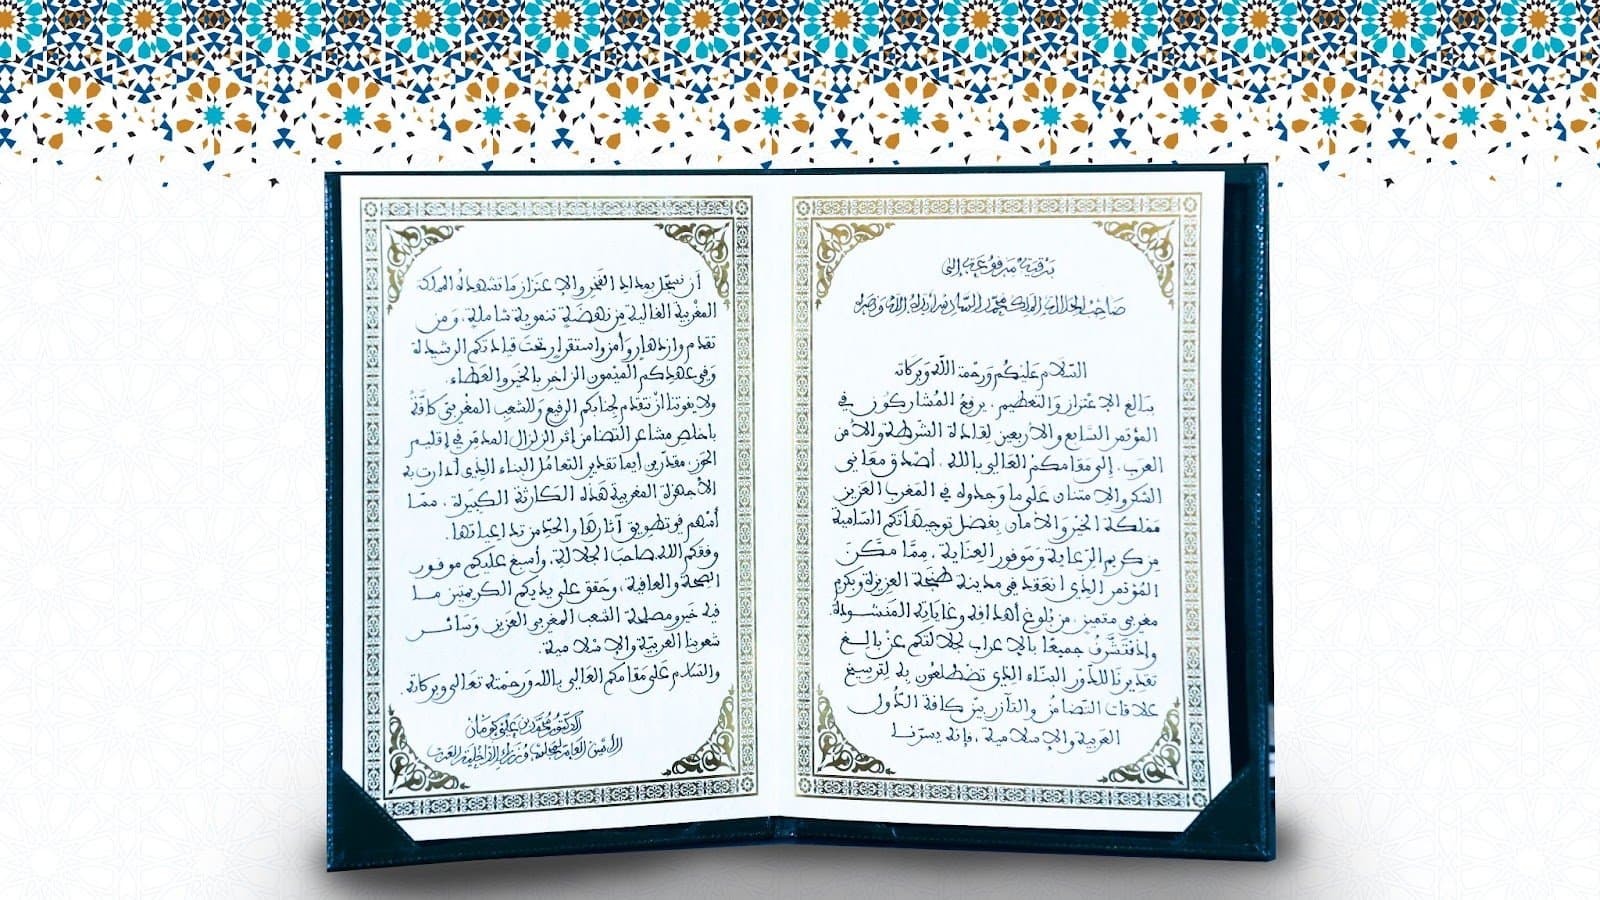 برقية مرفوعة إلى
صاحب الجلالة الملك محمد السادس أيده الله ونصره
السلام عليكم ورحمة الله وبركاته
ببالغ الاعتزاز والتعظيم، يرفع المشاركون في
المؤتمر السابع والأربعين لقادة الشرطة والأمن
العرب، إلى مقامكم العالي بالله، أصدق معاني
الشكر والامتنان على ما وجدوه في المغرب العزيز
مملكة الخير والأمان بفضل توجيهاتكم السامية
من كريم الرعاية وموفور العناية، مما مكن
المؤتمر الذي انعقد في مدينة طنجة العزيزة وبكرم
مغربي متميز، من بلوغ أهدافه وغاياته المنشودة.
وإذ نتشرف جميعا بالإعراب لجلالتكم عن بالغ
تقديرنا للدور البناء الذي تضطلعون به لترسيخ
علاقات التضامن والتآزر بين كافة الدول
العربية والإسلامية، فإنه يسرنا
أن نسجل بمداد الفخر والاعتزاز ما تشهده المملكة
المغربية الغالية من نهضة تنموية شاملة، ومن
تقدم وازدهار وأمن واستقرار تحت قيادتكم الرشيدة
وفي عهدكم الميمون الزاخر بالخير والعطاء.
ولا يفوتنا أن نتقدم لجنابكم الرفيع وللشعب المغربي كافة
بأخلص مشاعر التضامن إثر الزلزال المدمر في إقليم
الحوز، مقدرين أيما تقدير التعامل البناء الذي أدارت به
الأجهزة المغربية هذه الكارثة الكبيرة، مما
أسهم في تطويق آثارها والحد من تداعياتها.
وفقكم الله صاحب الجلالة، وأسبغ عليكم موفور
الصحة والعافية، وحقق على يديكم الكريمتين ما
فيه خير ومصلحة الشعب المغربي العزيز وسائر
شعوبنا العربية والإسلامية.
والسلام على مقامكم العالي بالله ورحمته تعالى وبركاته.
الدكتور محمد بن علي كومان
الأمين العام لمجلس وزراء الداخلية العرب